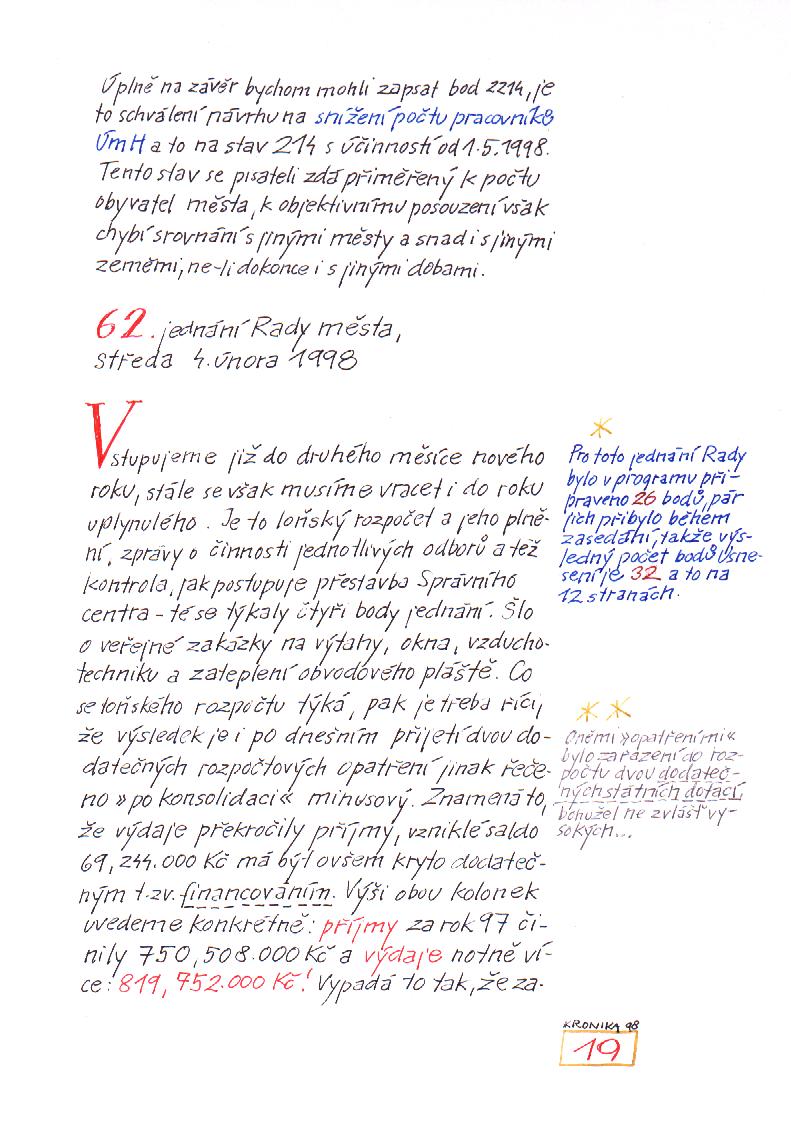 Úplně na závěr bychom mohli zapsat bod 2214, je
to schválení návrhu na snížení počtu pracovníků
ÚmH a to na stav 214 s účinností od 1.5.1998.
Tento stav se pisateli zdá přiměřený k počtu
obyvatel města, k objektivnímu posouzení však
chybí srovnání s jinými městy a snad i s jinými
zeměmi, ne-li dokonce i s jinými dobami.
62. jednání Rady města,
středa 4. února 1998
Vstupujeme již do druhého měsíce nového
roku, stále se však musíme vracet i do roku
uplynulého. Je to loňský rozpočet a jeho plně-
ní, zprávy o činnosti jednotlivých odborů a též
kontrola, jak postupuje přestavba Správního
centra - té se týkaly čtyři body jednání. Šlo
o veřejné zakázky na výtahy, okna, vzducho-
techniku a zateplení obvodového pláště. Co
se loňského rozpočtu týká, pak je třeba říci,
že výsledek je i po dnešním přijetí dvou do-
datečných rozpočtových opatření jinak řeče-
no »po konsolidaci« minusový. Znamená to,
že výdaje překročily příjmy, vzniklé saldo
69,244.000 Kč má být ovšem kryto dodateč-
ným t.zv. financováním. Výši obou kolonek
uvedeme konkrétně: příjmy za rok 97 či-
nily 750,508.000 Kč a výdaje notně ví-
ce: 819,752.000 Kč! Vypadá to tak, že za-
*
Pro toto jednání Rady
bylo v programu při-
praveno 26 bodů, pár
jich přibylo během
zasedání, takže výs-
ledný počet bodů usne-
sení je 32 a to na
12 stranách.
* *
Oněmi »opatřeními«
bylo zařazení do roz-
počtu dvou dodateč-
ných státních dotací,
bohužel ne zvlášť vy-
sokých...
KRONIKA 98
19